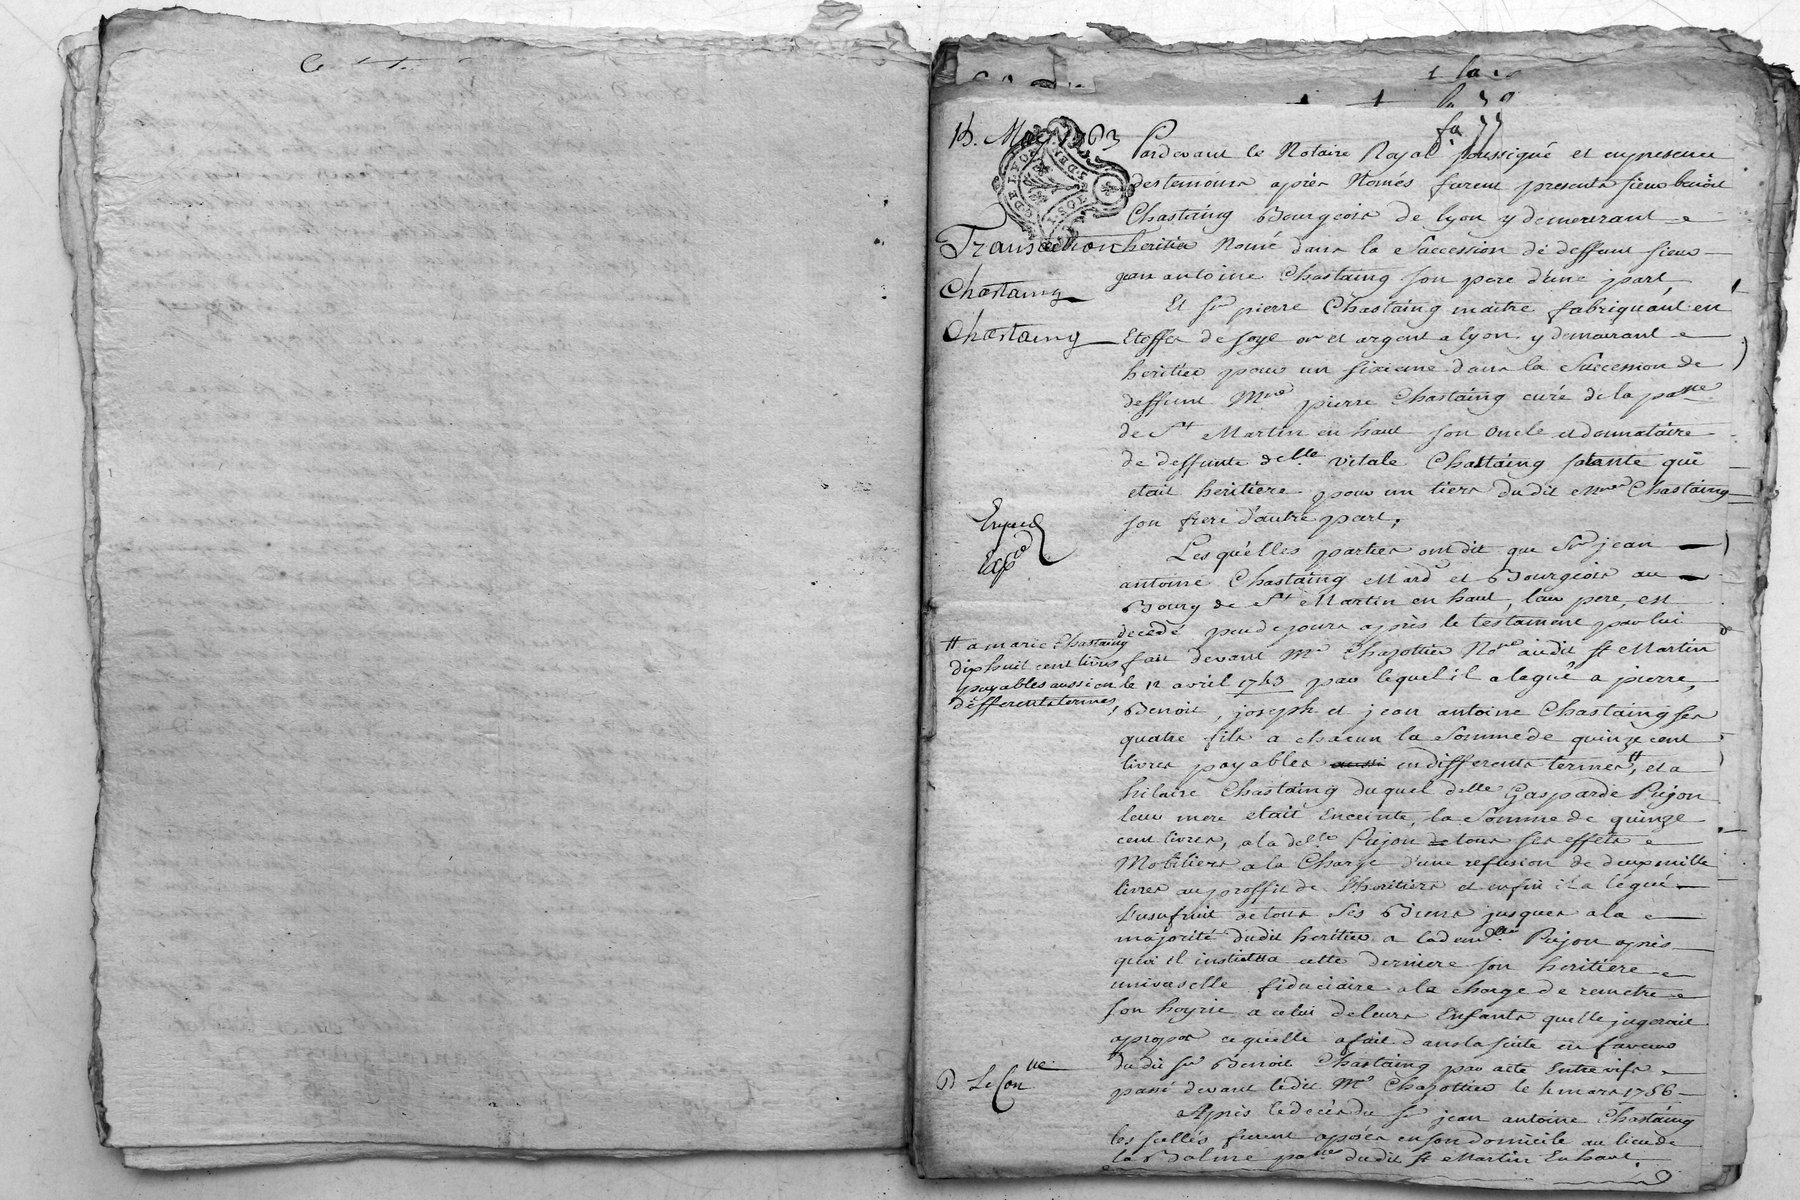 Mai 1763
Transaction
Chastaing
Chastaing
Pardevant le Notaire Royal soussigné et en presence
des temoins après Només furent presents sieur benoit
Chastaing Bourgeois de lyon y demeurant
heritier Nomé dans la Succession de deffunt sieur
jean antoine Chastaing son pere d'une part,
Et sr pierre Chastaing maitre fabriquant en
Etoffes de soye or et argent a lyon y demeurant
heritier pour un sixieme dans la Succession de
deffunt Mre pierre Chastaing curé de la psse
de St Martin en haut son oncle et donnataire
de deffunte delle vitale Chastaing sa tante qui
etait heritiere pour un tiers dudit Chastaing
son frere d'autre part,
Lesquelles parties ont dit que Sr jean
antoine Chastaing Mard et Bourgeois au
Bourg de St Martin en haut, leur pere, est
decedé peu de jours après le testament par lui
fait devant Me Chazottier Nore audit st Martin
le 12 avril 1743 par lequel il a legué a pierre,
Benoit, joseph et jean antoine Chastaing ses
quatre fils a chacun la Somme de quinze cent
livres payables aussi en differents termes, # et a
hilaire Chastaing duquel delle Gasparde Pujon
leur mere etait Enceinte, la Somme de quinze
cent livres, a la delle Pujon de tous ses effets
Mobiliers a la Charge d'une refusion de deux mille
livres au proffit de l'heritiere et enfin il a legué
L'usufruit de tous Ses Biens jusques a la
majorité dudit heritier a lad. delle Pujon après
quoi il institua cette derniere son heritiere
universelle fiduciaire a la charge de remettre
son hoyrie a celui de leurs Enfants quelle jugerait
apropos ce quelle a fait dans la suite en faveur
dudit sr Benoit Chastaing par acte Entre vifs
passé devant ledit Me Chazottier le 4 mars 1756
Après le decès du sr jean antoine Chastaing
les scellés furent aposés en son domicile au lieu de
la Balme psse dudit st Martin En haut
# a marie Chastaing
dix huit cent livres
payables aussi en
differents termes,